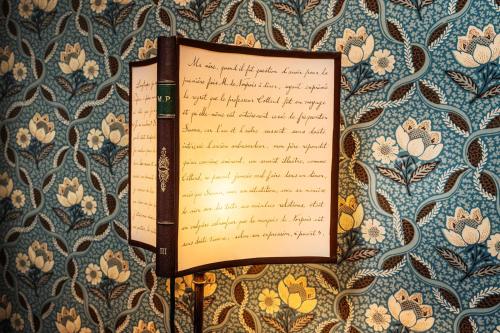 M.P.
III
Ma mère, quand il fut question d'avoir pour la
première fois M. de Norpois à dîner, ayant exprimé
le regret que le professeur Cottard fût en voyage
et qu'elle-même eût entièrement cessé de fréquenter
Swann, car l'un et l'autre eussent sans doute
intéressé l'ancien ambassadeur, mon père répondit
qu'un convive éminent, un savant illustre, comme
Cottard, ne pouvait jamais mal faire dans un dîner,
mais que Swann, avec son ostentation, avec sa manière
de crier sur les toits ses moindres relations, était
un vulgaire esbroufeur que le marquis de Norpois eût
sans doute trouvé, selon son expression, « puant ».